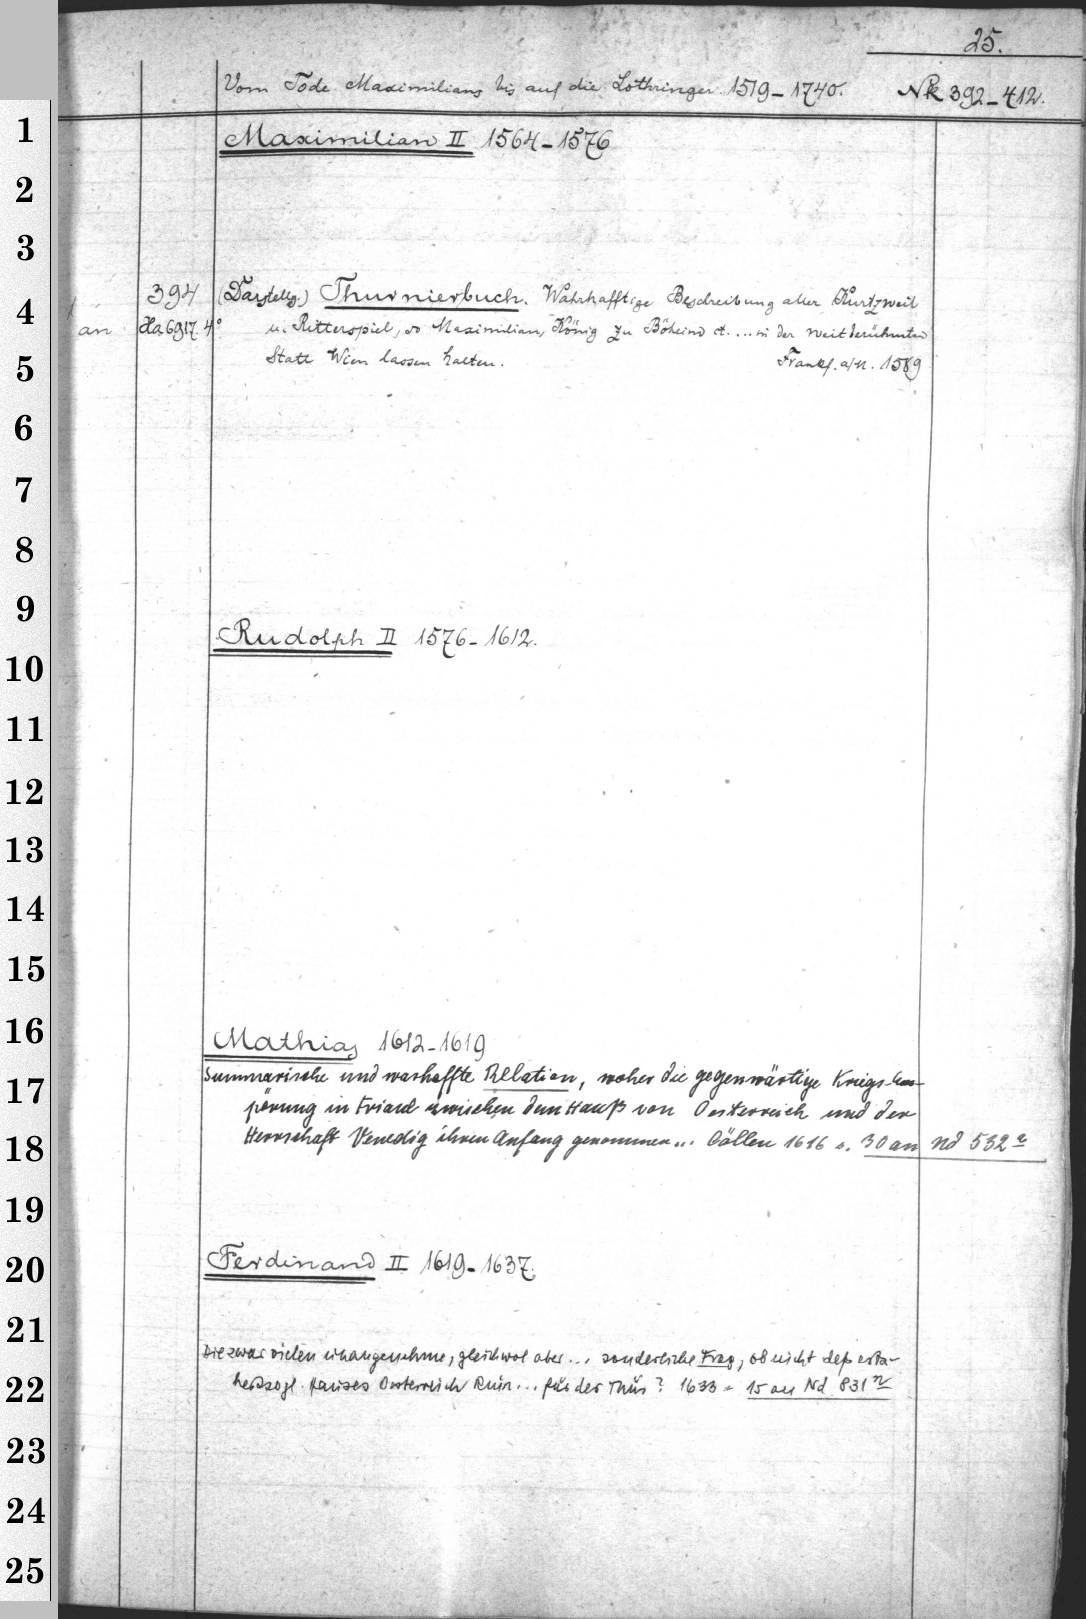 25.
Vom Tode Maximilians bis auf die Lothringer 1519-1740. Nk 392-412.
Maximilian II 1564-1576
394 (Darstellg.) Thurnierbuch. Wahrhafftige Beschreibung aller Kurtzweil
an Ha 6917 4° u. Ritterspiel, so Maximilian, König zu Böheim et. ... in der weitberühmten
Statt Wien lassen halten. Frankf. a/M. 1589
Rudolph II 1576-1612.
Mathias 1612-1619
Summarische und warhaffte Relation, woher die gegenwärtige Kriegs-Em-
pörung in Friaul zwischen dem Hauß von Oesterreich und der
Herrschafft Venedig ihren Anfang genommen... Cöllen 1616 30 an Nd 532
Ferdinand II 1619-1637.
Die zwar vielen unangenehme, gleichwol aber... sonderliche Frag, ob nicht deß ertz-
herzogl. Hauses Oesterreich Ruin... für der Thür? 1633 = 15 an Nd 831 n
1
2
3
4
5
6
7
8
9
10
11
12
13
14
15
16
17
18
19
20
21
22
23
24
25